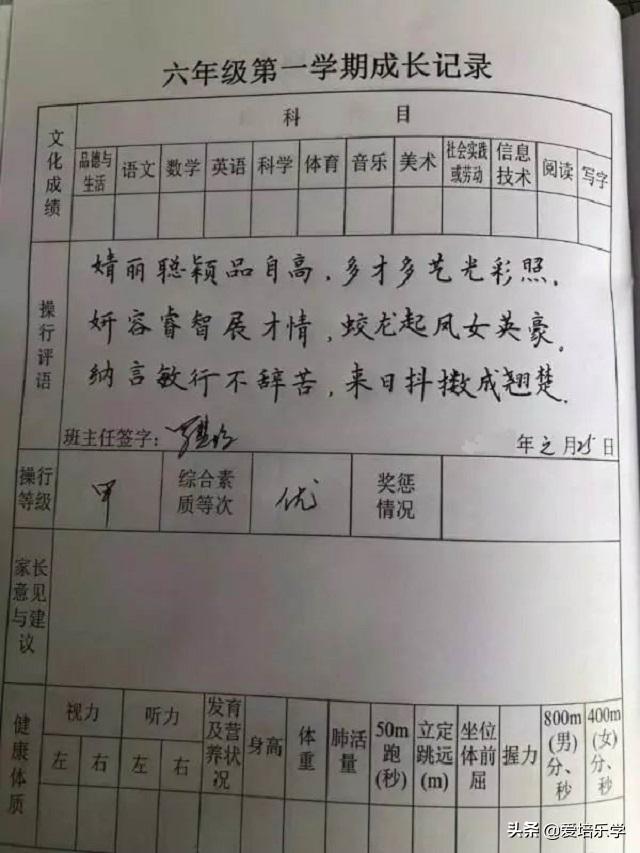 六年级第一学期成长记录
文化成绩
科 目
品德与生活 语文 数学 英语 科学 体育 音乐 美术 社会实践或劳动 信息技术 阅读 写字
操行评语
婧丽聪颖品自高,多才多艺光彩照。
妍容睿智展才情,蛟龙起凤女英豪。
纳言敏行不辞苦,来日抖擞成翘楚。
班主任签字: 年 元 月 25 日
操行等级 甲 综合素质等次 优 奖惩情况
家长意见与建议
健康体质
视力 听力 发育及营养状况 身高 体重 肺活量 50m跑(秒) 立定跳远(m) 坐位体前屈 握力 800m(男)分、秒 400m(女)分、秒
左 右 左 右
头条 @爱培乐学